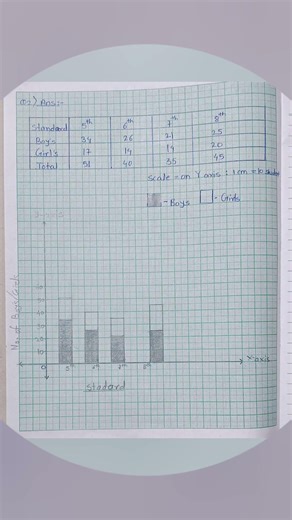 Q.2) Ans:-
Standard 5th 6th 7th 8th
Boys 34 26 21 25
Girl's 17 14 14 20
Total 51 40 35 45
Scale = on Y axis : 1 cm = 10 students
- Boys - Girls
Y-axis
No. of Boys/Girls
0
5th 6th 7th 8th
X-axis
Stadard